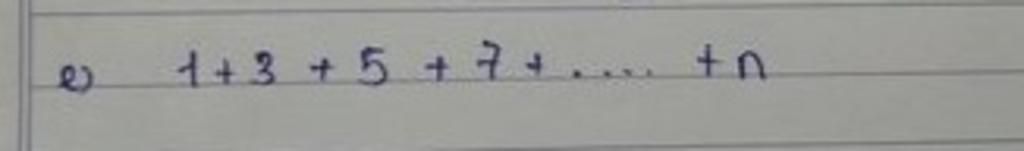 e) 1+3 + 5 + 7 + ..... + n